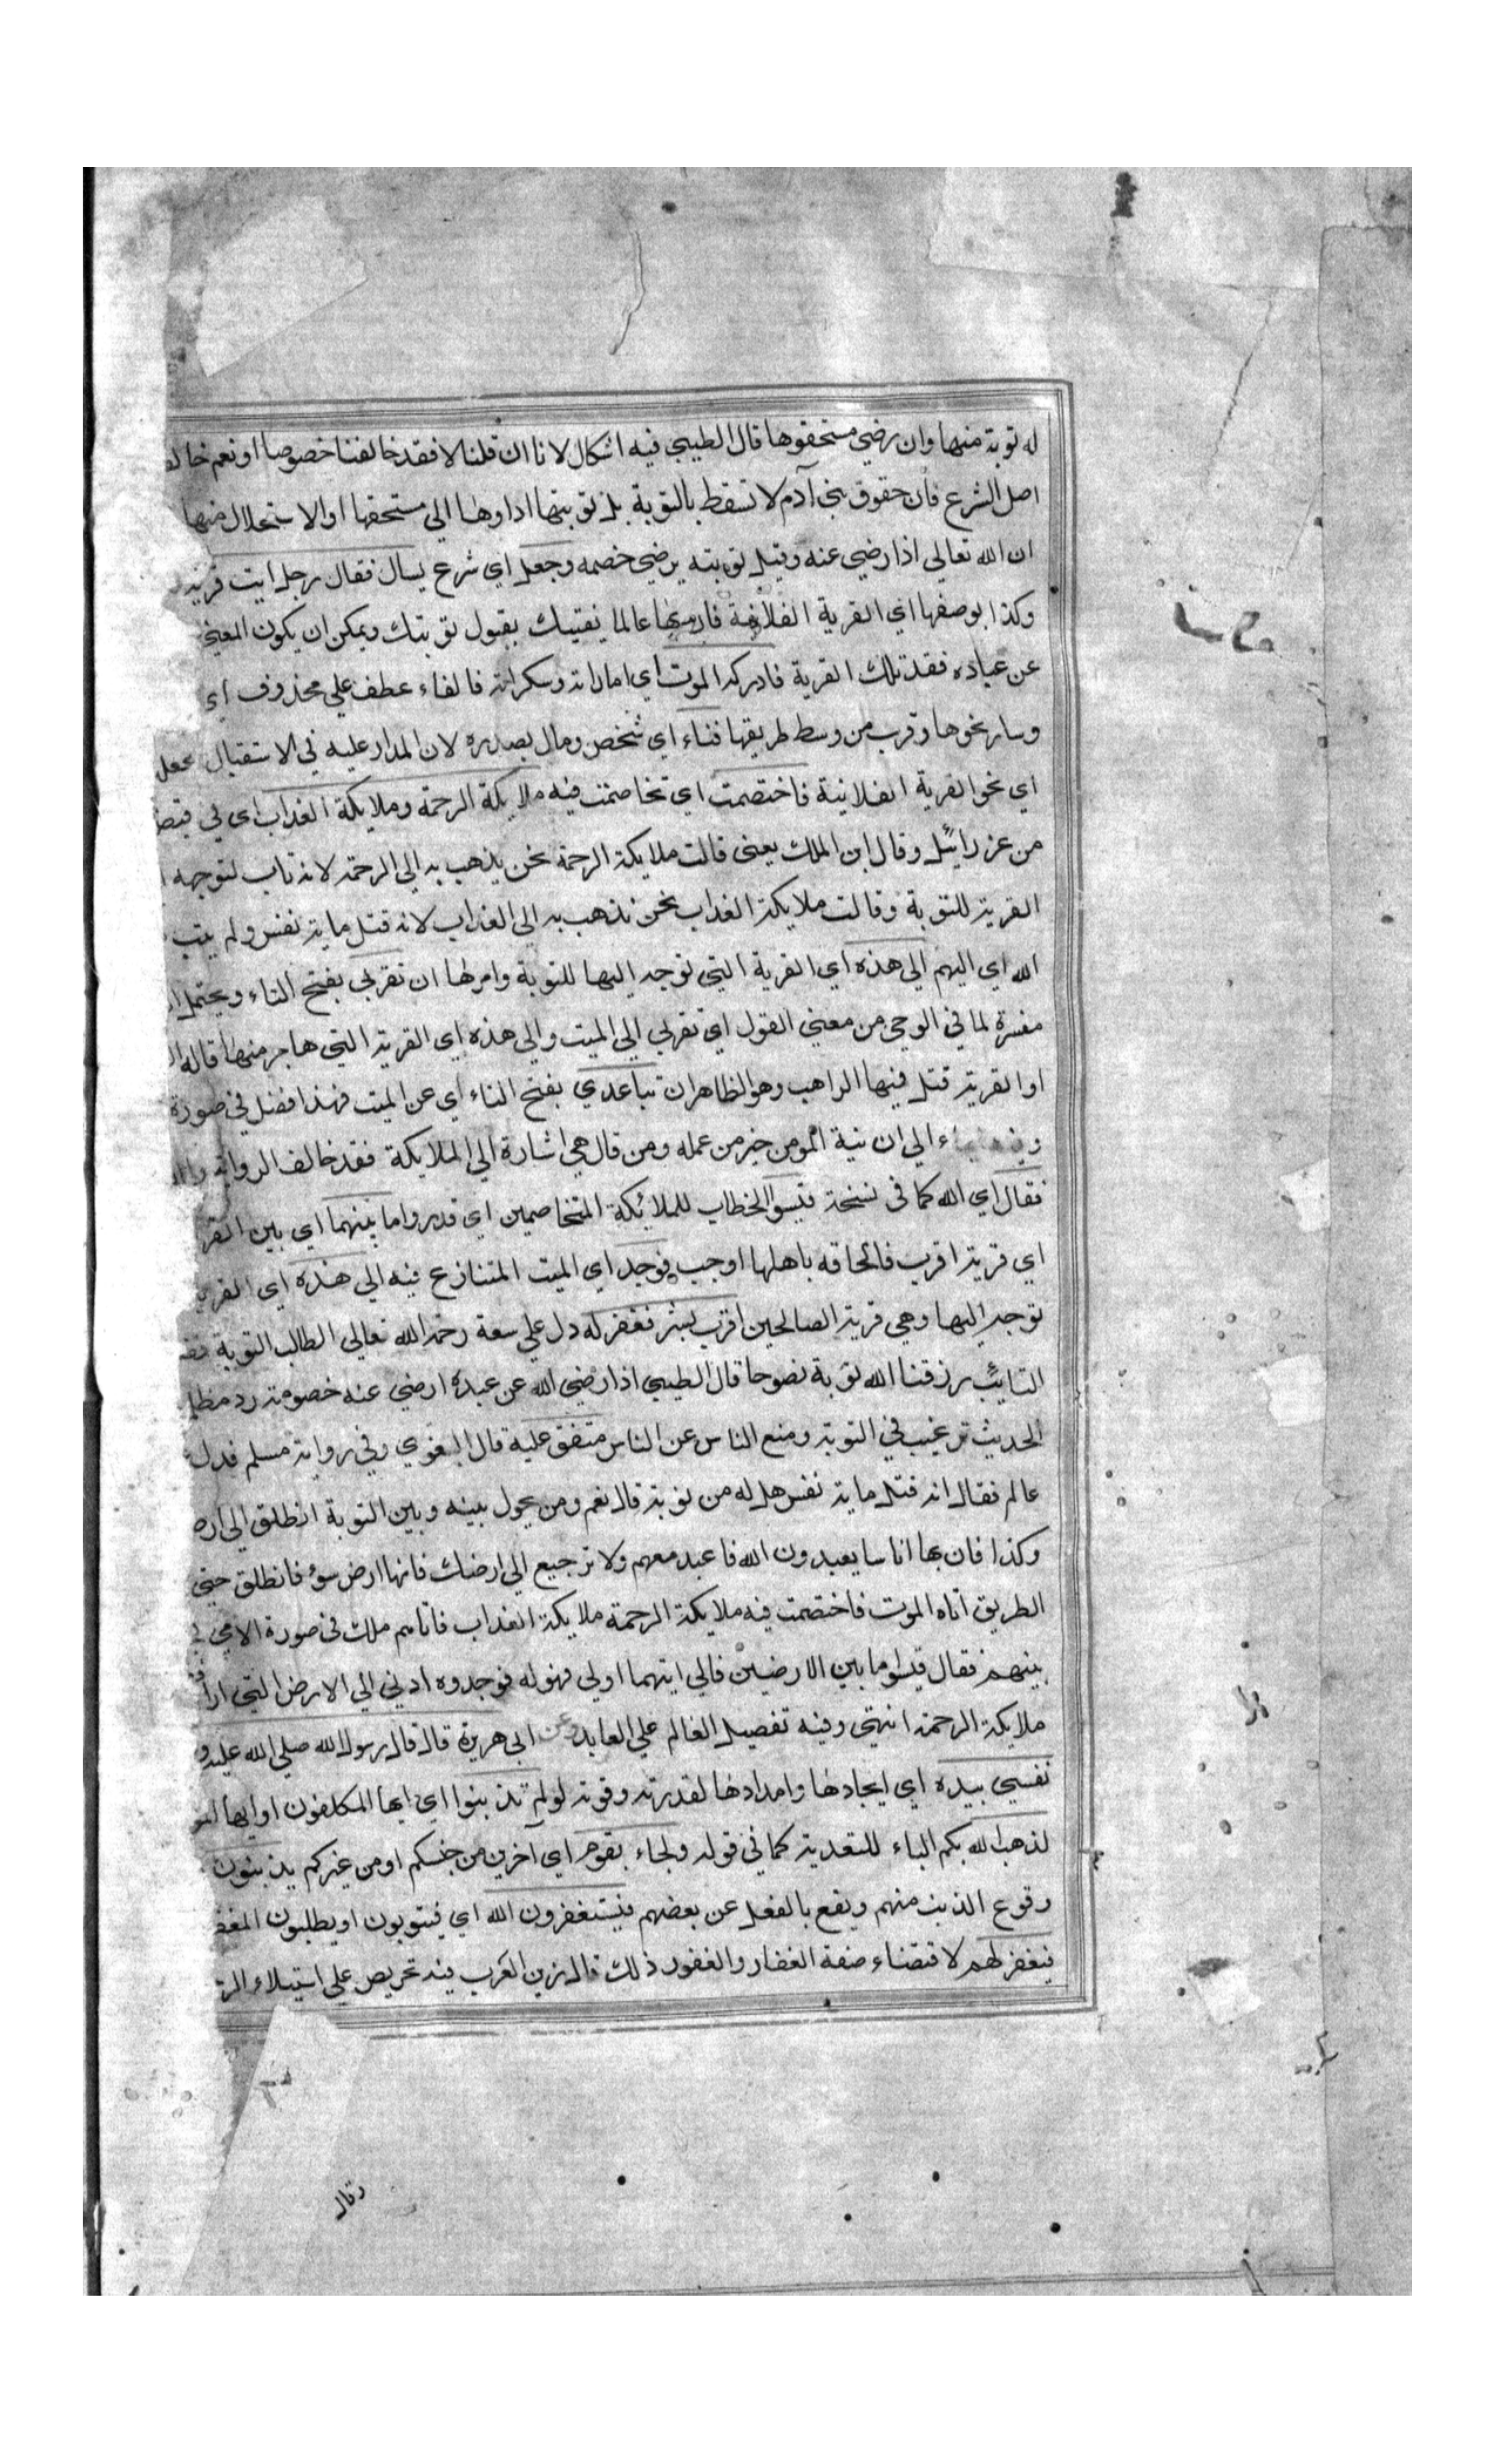 له توبة منها وان رضي مستحقوها قال الطيبي فيه اشكال لانا ان قلنا لا فقد خالفنا خصوصا او نعم
اصل الشرع فان حقوق بني آدم لا تسقط بالتوبة بل توبتها اداوها الي مستحقها او الاستحلال منها
ان الله تعالي اذا رضي عنه وقبل توبته يرضي خصمه وجعل اي شرع يسال فقال رجل ايت قرية
وكذا بوصفها اي القرية الفلانية فان عالما يفتيك بقبول توبتك ويمكن ان يكون المعني
عن عباده فقد تلك القرية فادركه الموت اي اماراته وسكراته فالفاء عطف علي محذوف اي
وسار نحوها وقرب من وسط طريقها فناء اي شخص ومال بصدره لان المدار عليه في الاستقبال
اي نحو القرية الفلانية فاختصمت اي تخاصمت فيه ملايكة الرحمة وملايكة العذاب اي في
من عزرائيل وقال ابن الملك يعني قالت ملايكة الرحمة نحن يذهب به الي الرحمة لانه تاب لتوجهه
القرية للتوبة وقالت ملايكة العذاب نحن نذهب به الي العذاب لانه قتل ماية نفس ولم يتب
الله اي اليهم الي هذه اي القرية التي توجه اليها للتوبة وامرها ان تقربي بفتح التاء ويحتمل
مفسرة لما في الوحي من معني القول اي تقربي الي الميت والي هذه اي القرية التي هاجر منها قاله
او القرية قتل فيها الراهب وهو الظاهر ان تباعدي بفتح التاء اي عن الميت فهذا فضل في صورة
الي ان نية المومن خير من عمله ومن قال هي اشارة الي الملايكة فقد خالف الرواية
فقال اي الله كما في نسخة قيسوا الخطاب للملائكة المتخاصمين اي قدروا ما بينهما اي بين
اي قرية اقرب فالحاقه باهلها اوجب فوجد اي الميت المتنازع فيه الي هذه اي
توجه اليها وهي قرية الصالحين اقرب بشبر فغفر له دل علي سعة رحمة الله تعالي الطالب التوبة
التايب رزقنا الله توبة نصوحا قال الطيبي اذا رضي الله عن عبده ارضي عنه خصومه ورد
الحديث ترغيب في التوبة ومنع الناس عن الناس متفق عليه قال البغوي وفي رواية مسلم فدل
عالم فقال انه قتل ماية نفس هل له من توبة قال نعم ومن يحول بينه وبين التوبة انطلق الي
وكذا فان بها اناسا يعبدون الله فاعبد معهم ولا ترجع الي ارضك فانها ارض سؤ فانطلق حتي
الطريق اتاه الموت فاختصمت فيه ملايكة الرحمة ملايكة العذاب فاتاهم ملك في صورة
بينهم فقال قيسوا ما بين الارضين فالي ايتهما اولي فهو له فوجدوه ادني الي الارض التي
ملايكة الرحمة انتهي وفيه تفصيل العالم علي العابد وعن ابي هريرة قال قال رسول الله صلي الله عليه و
نفسي بيده اي ايجادها وامدادها لقدرته وقوته لو لم تذنبوا اي ايها المكلفون او ايها
لذهب الله بكم الباء للتعدية كما في قوله ولجاء بقوم اي آخرين من جنسكم او من غيركم يذنبون
وقوع الذنب منهم ويقع بالفعل عن بعضهم فيستغفرون الله اي فيتوبون او يطلبون
فيغفر لهم لاقتضاء صفة الغفار والغفور ذلك قال زين العرب فيه تحريص علي استيلاء
وقال